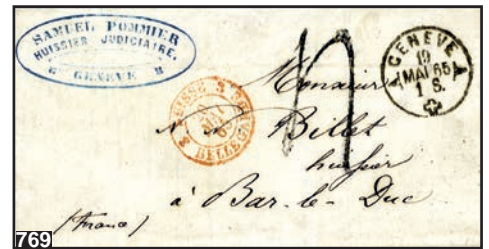 SAMUEL POMMIER
HUISSIER JUDICIAIRE.
GENÈVE
GENEVE
19
MAI 65
1 S.
SUISSE
MAI
BELLEG
Monsieur
Billet
huissier
à Bar-le-Duc
(France)
769